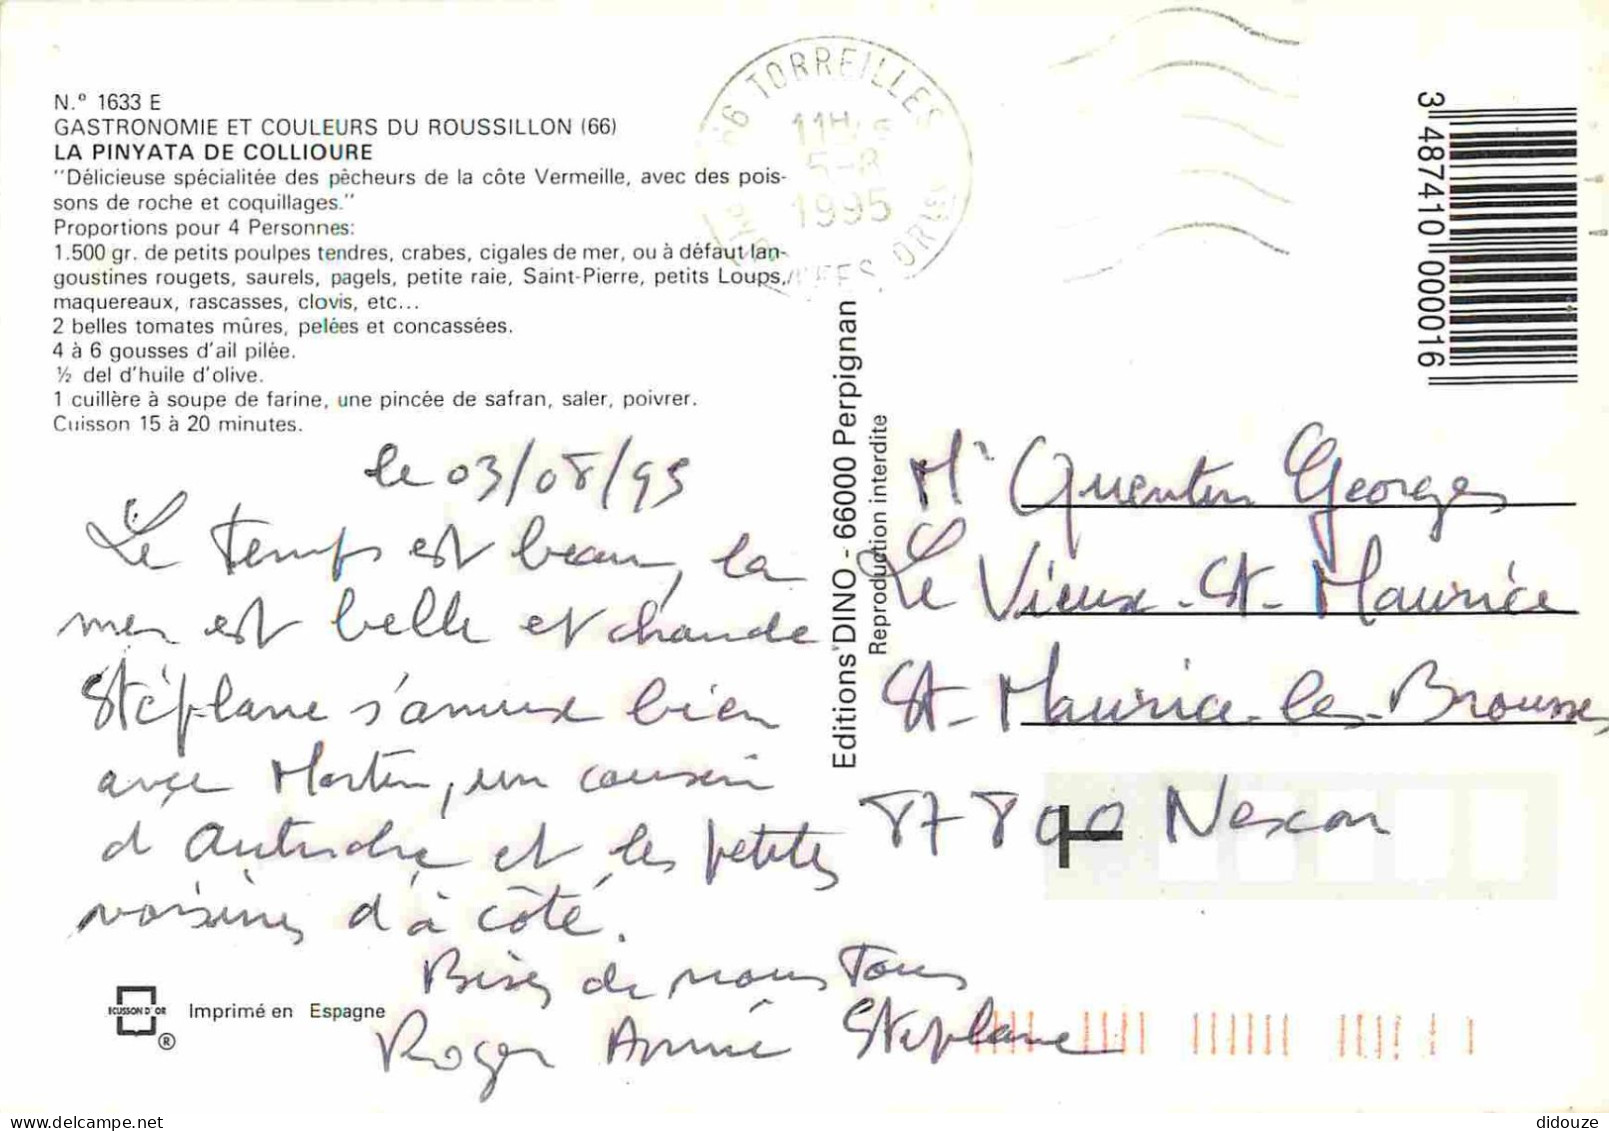 N.º 1633 E
GASTRONOMIE ET COULEURS DU ROUSSILLON (66)
LA PINYATA DE COLLIOURE
"Délicieuse spécialitée des pêcheurs de la côte Vermeille, avec des pois-
sons de roche et coquillages."
Proportions pour 4 Personnes:
1.500 gr. de petits poulpes tendres, crabes, cigales de mer, ou à défaut lan-
goustines rougets, saurels, pagels, petite raie, Saint-Pierre, petits Loups,
maquereaux, rascasses, clovis, etc...
2 belles tomates mûres, pelées et concassées.
4 à 6 gousses d'ail pilée.
½ del d'huile d'olive.
1 cuillère à soupe de farine, une pincée de safran, saler, poivrer.
Cuisson 15 à 20 minutes.
le 03/08/95
Le temps est beau, la
mer est belle et chaude
Stéphane s'amuse bien
avec Martin, un cousin
d et les petites
voisines d'à côté.
Bises de nous Tous
Roger Annie Stéphane
ECUSSON D'OR
®
Imprimé en Espagne
66 TORREILLES
11H
5-8
1995
PYRENEES ORIENTALES
Editions DINO - 66000 Perpignan
Reproduction interdite
3 487410 000016
Mr Quentin Georges
Le Vieux-St-Maurice
St-Maurice-les-Brousses
87800 Nexon
T
didouze